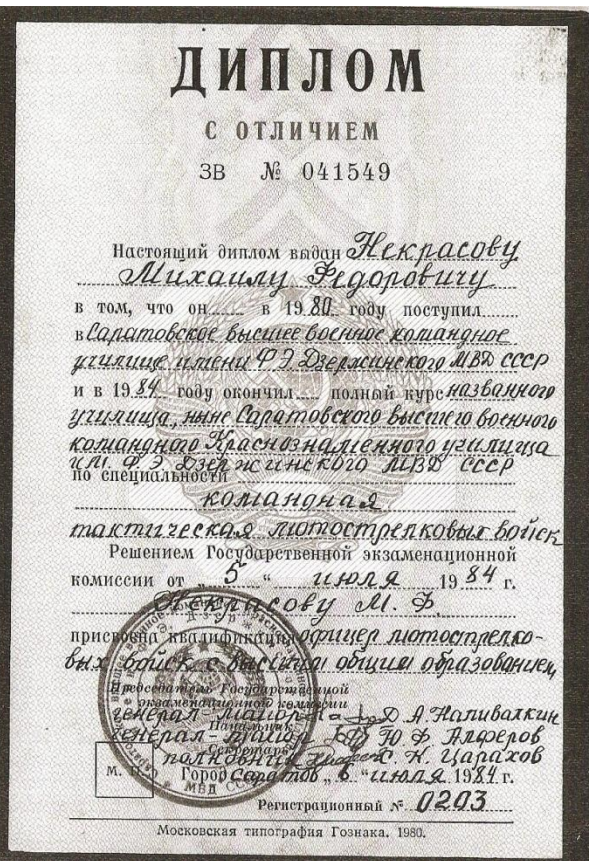 ДИПЛОМ
С ОТЛИЧИЕМ
ЗВ № 041549
Настоящий диплом выдан Некрасову
Михаилу Федоровичу
в том, что он в 1980 году поступил
в Саратовское высшее военное командное
училище имени Ф.Э. Дзержинского МВД СССР
и в 1984 году окончил полный курс названного
училища, ныне Саратовского высшего военного
командного Краснознаменного училища
им. Ф.Э. Дзержинского МВД СССР
по специальности
командная
тактическая мотострелковых войск
Решением Государственной экзаменационной
комиссии от „5“ июля 1984 г.
Некрасову М. Ф.
присвоена квалификация офицер мотострелко-
вых войск с высшим общим образованием
Председатель Государственной
экзаменационной комиссии
генерал-майор Д. А. Наливалкин
Начальник
генерал-майор Ю. Ф. Алферов
Секретарь
полковник С. К. Царахов
М. П.
Город Саратов „6“ июля 1984 г.
МВД СССР
Регистрационный № 0203
Московская типография Гознака. 1980.